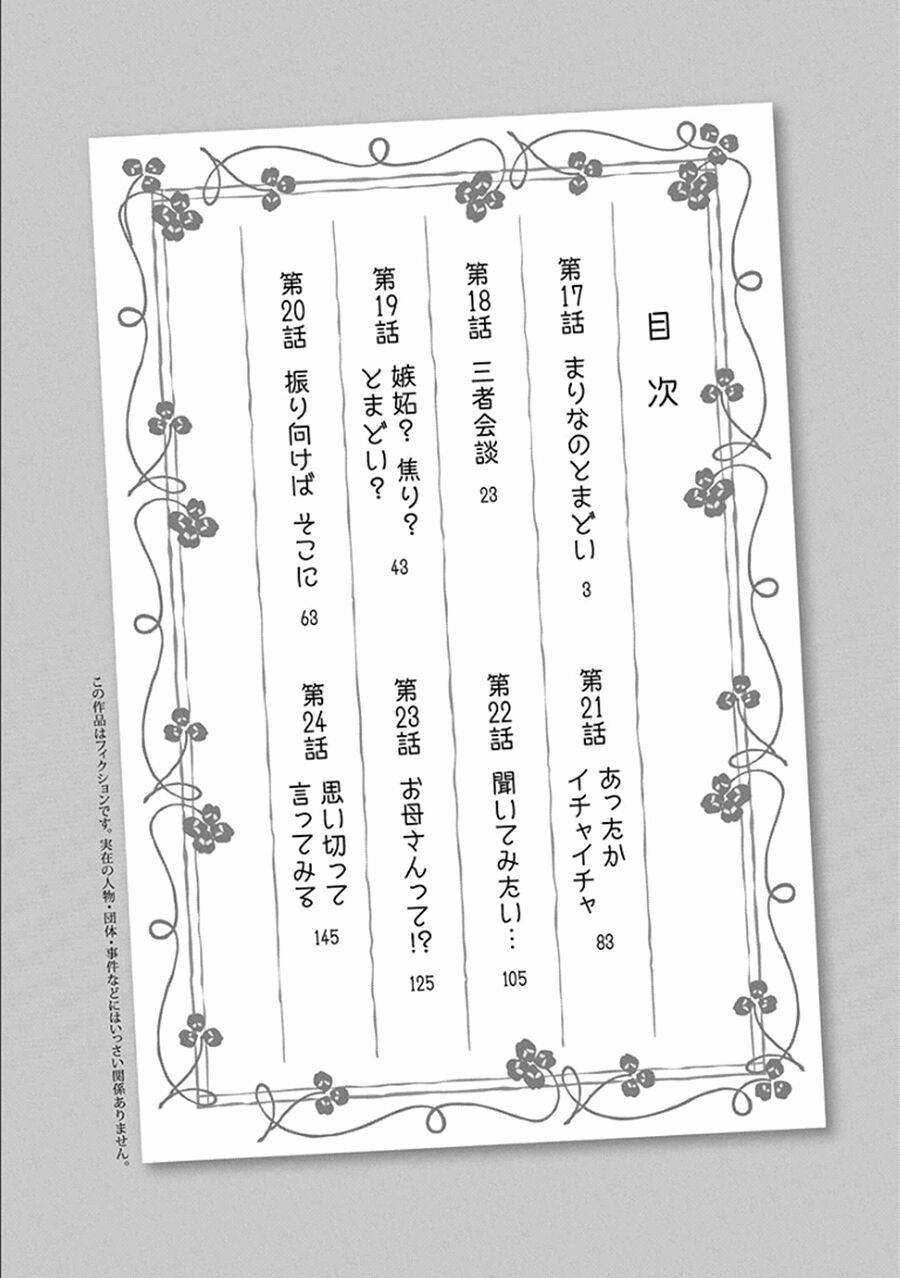 目次
第17話 まりなのとまどい 3
第18話 三者会談 23
第19話 嫉妬? 焦り?
とまどい? 43
第20話 振り向けば そこに 63
第21話 あったか
イチャイチャ 83
第22話 聞いてみたい… 105
第23話 お母さんって!? 125
第24話 思い切って
言ってみる 145
この作品はフィクションです。実在の人物・団体・事件などにはいっさい関係ありません。